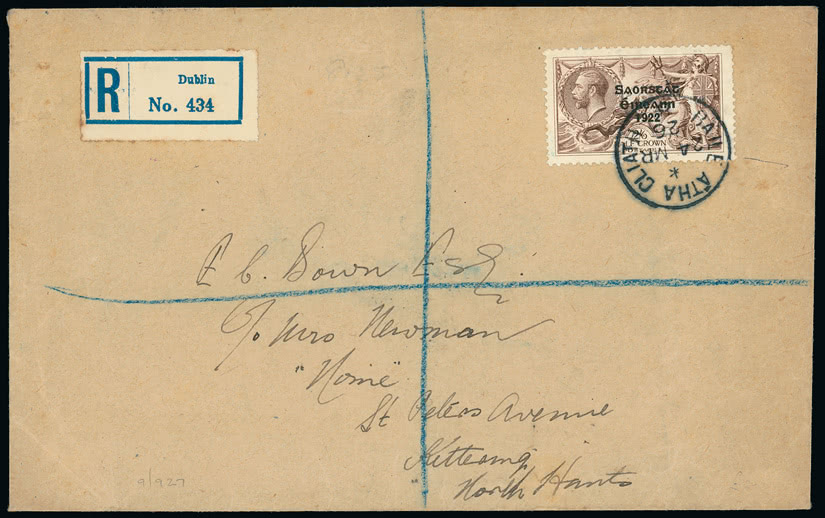 R
Dublin
No. 434
Saorstát
Éireann
1922
2/6
BAILE ÁTHA CLIATH
24 MR
26
E C. Bown Esq.
c/o Mrs Newman
"Home"
St Peters Avenue
Kettering
North Hants
9/927